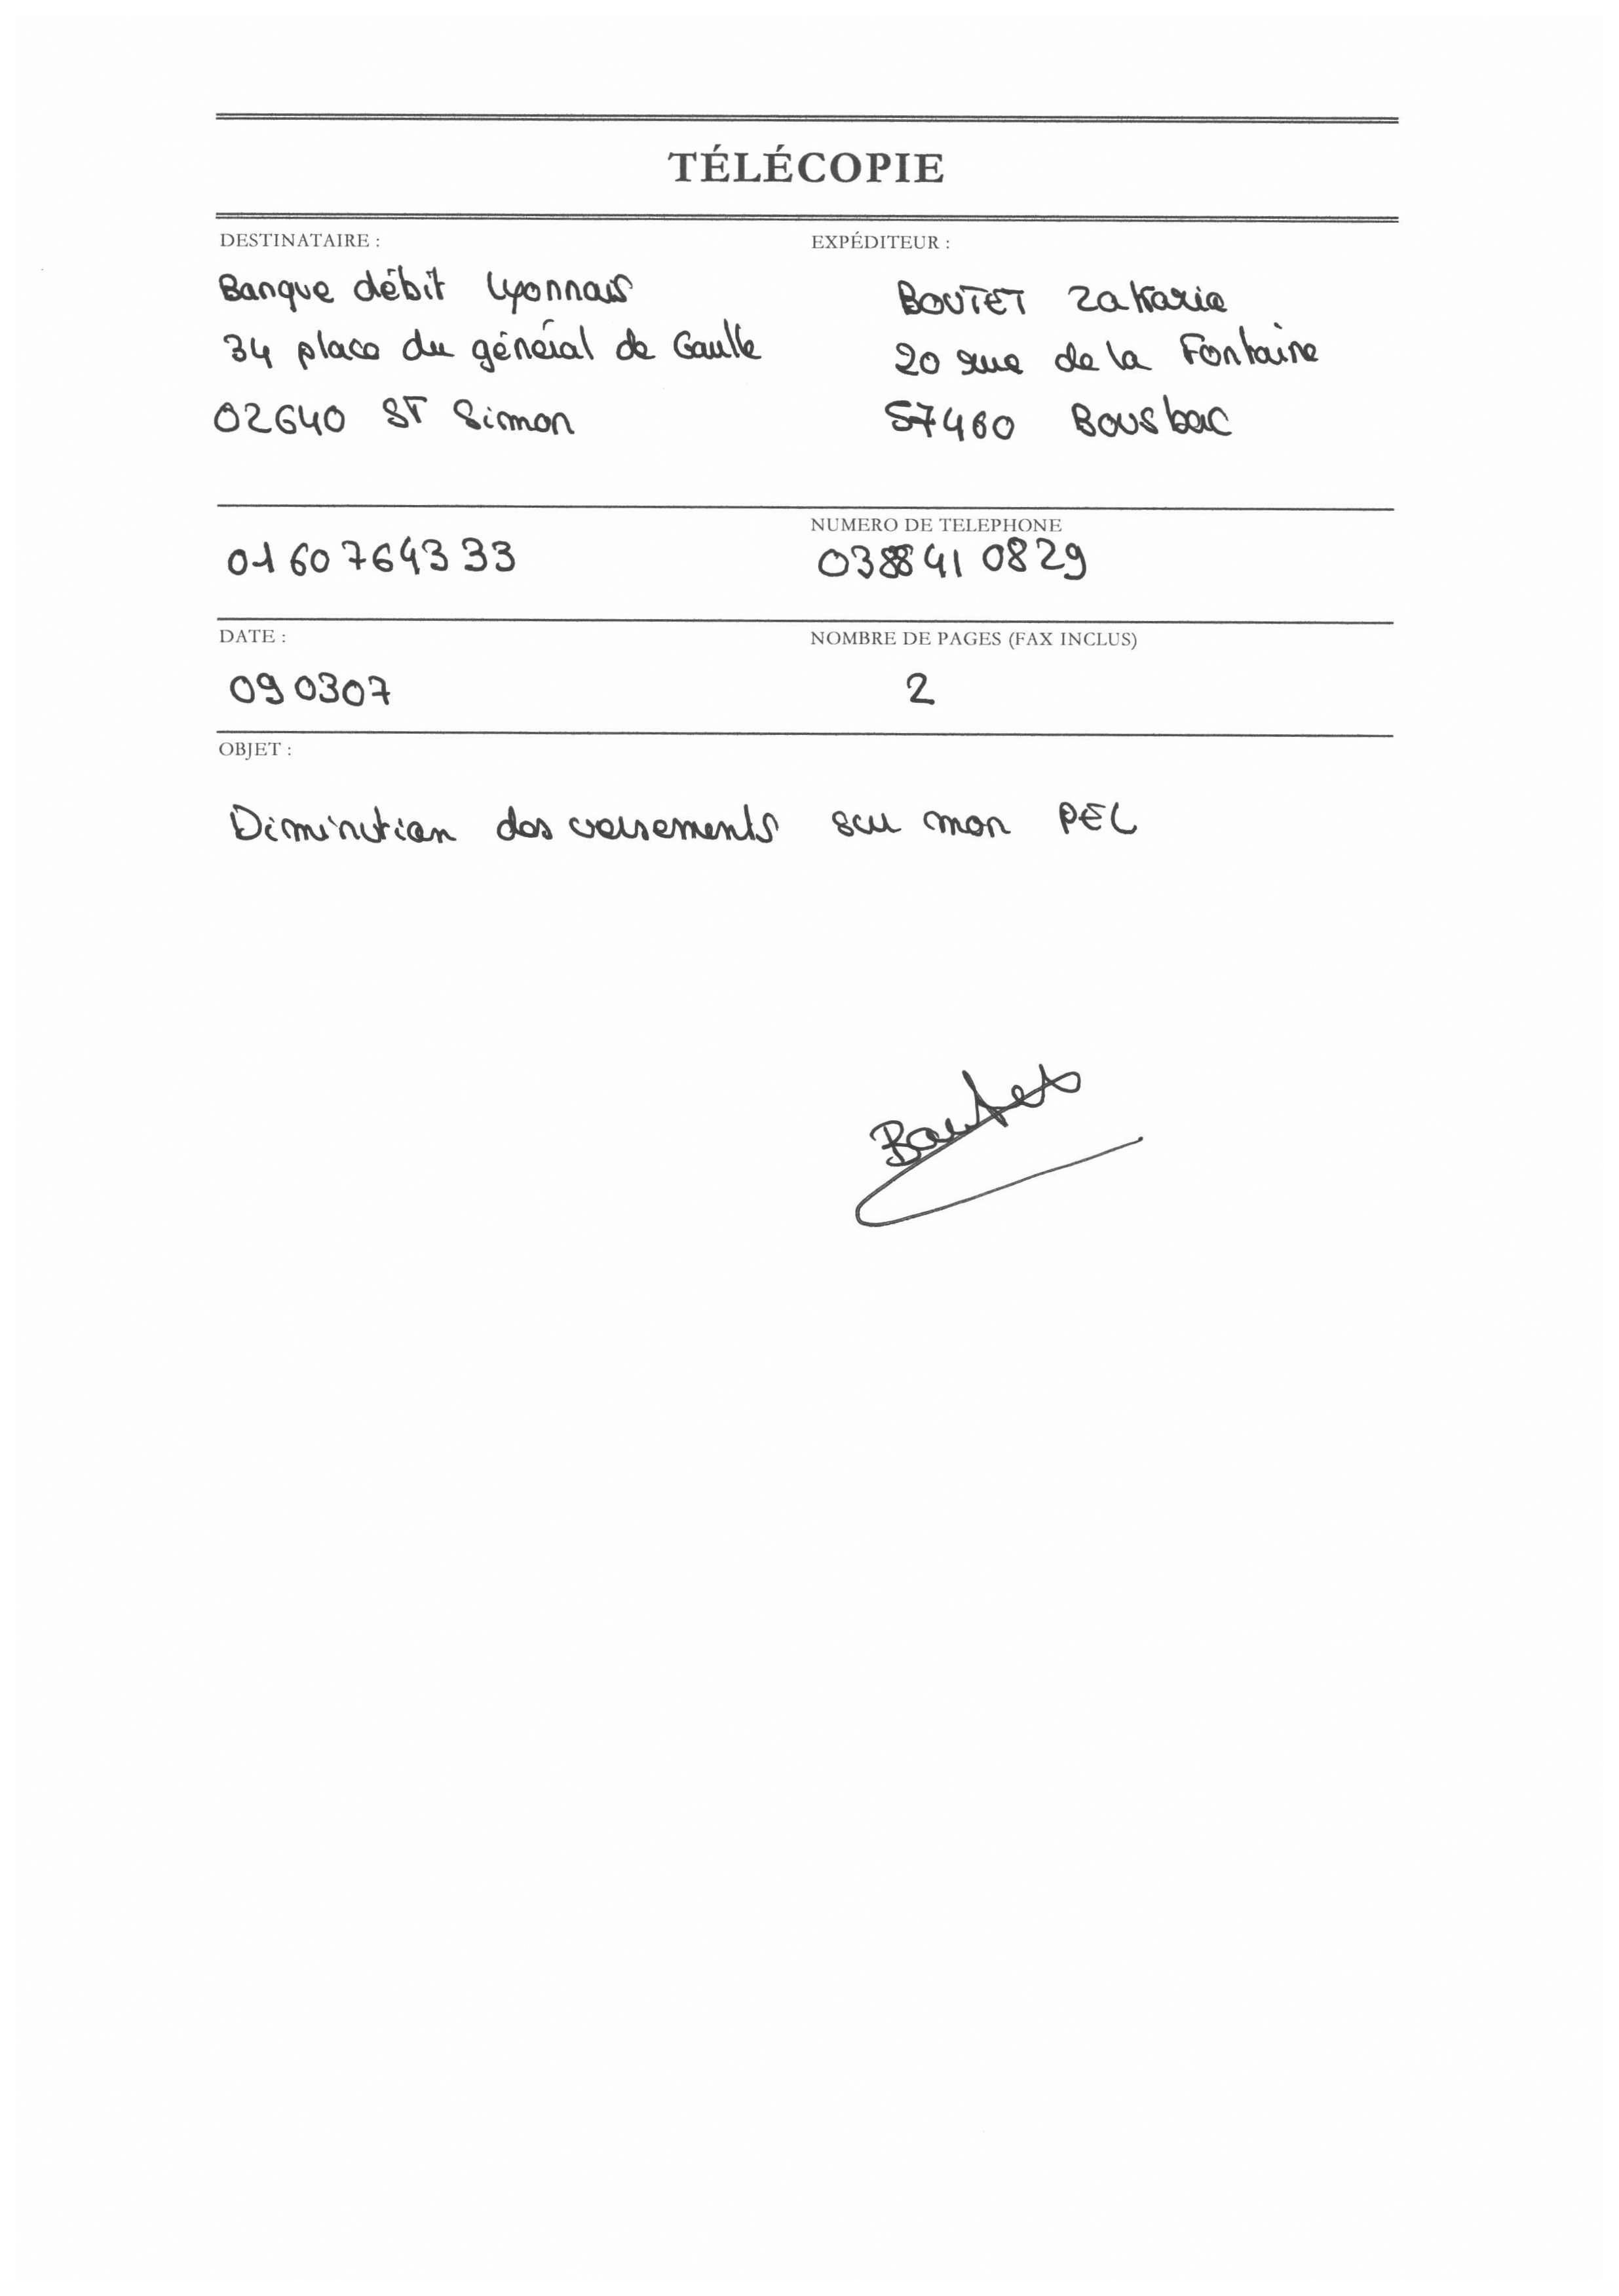 TÉLÉCOPIE
DESTINATAIRE :
Banque débit Lyonnais
34 place du général de Gaulle
02640 ST Simon
EXPÉDITEUR :
BOUTET Zakaria
20 rue de la Fontaine
57460 Bousbac
0160764333
NUMERO DE TELEPHONE
0388410829
DATE :
090307
NOMBRE DE PAGES (FAX INCLUS)
2
OBJET :
Diminution des versements sur mon PEL
Boutet